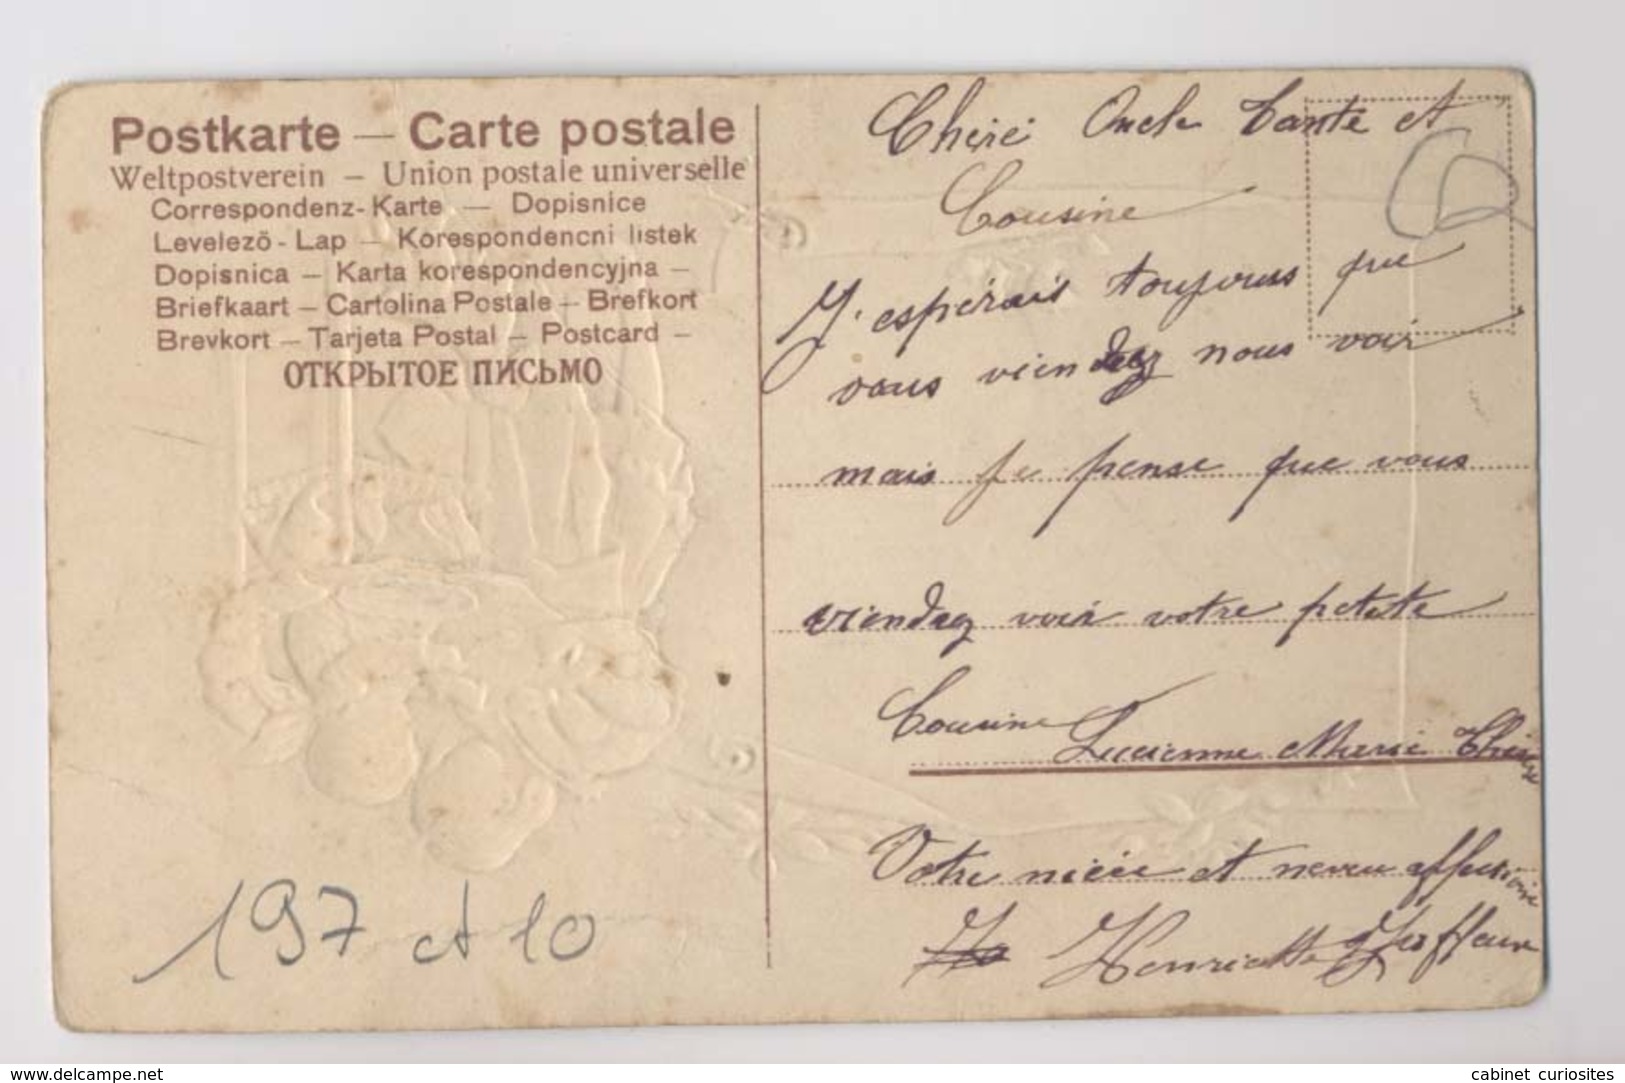 Postkarte — Carte postale
Weltpostverein — Union postale universelle
Correspondenz-Karte — Dopisnice
Levelezö - Lap — Korespondencni listek
Dopisnica — Karta korespondencyjna —
Briefkaart — Cartolina Postale — Brefkort
Brevkort — Tarjeta Postal — Postcard —
ОТКРЫТОЕ ПИСЬМО
197 et 10
Chéré Oncle Tante et
Cousine
J'espérais toujours que
vous viendez nous voir
mais je pense que vous
viendrez voir votre petete
Cousine Lucienne Marie Thérèse
Votre nièce et neveu affusione
Henriette
www.delcampe.net
cabinet_curiosites